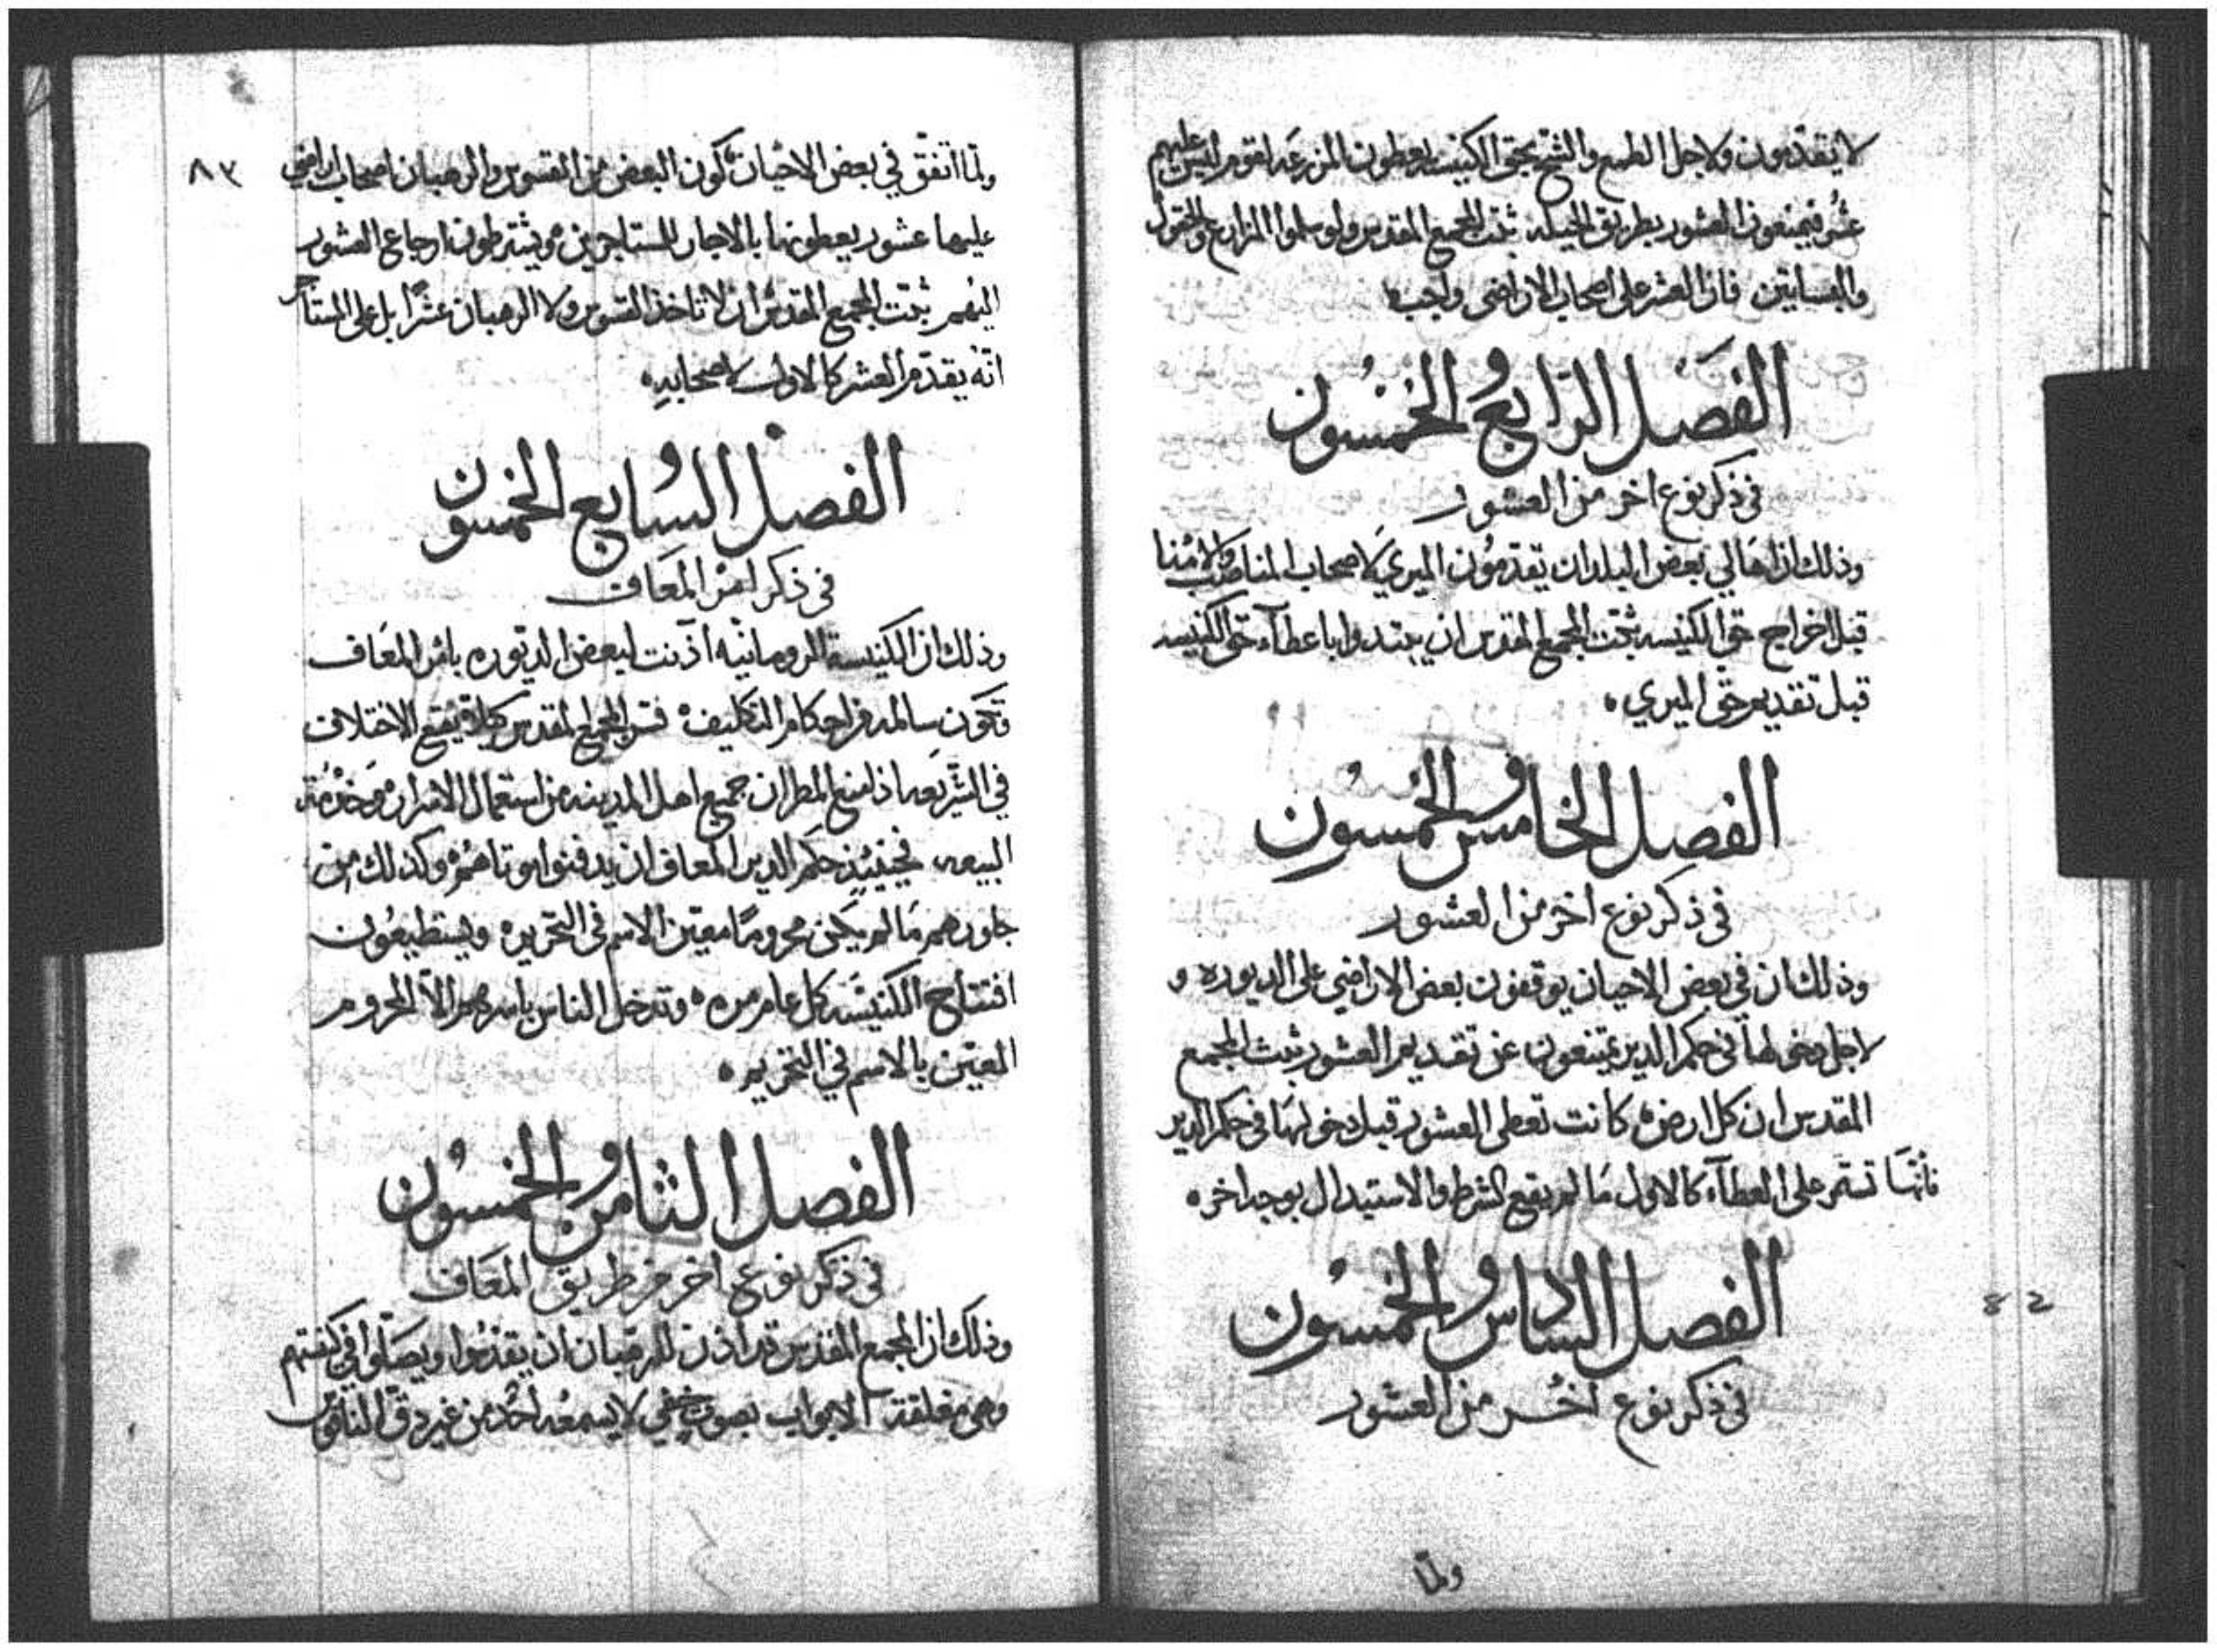 لا يقدّمون ولاجل الطمع والشح بحق الكنيسه يعطون المزرعه لقوم ليس عليهم
عشر فيمنعون العشور بطريق الحيله ثبت المجمع المقدس ولو سلموا المزارع والحقول
والبساتين فان العشر على اصحاب الاراضى واجب
الفصل الرابع والخمسون
فى ذكر نوع اخر من العشور
وذلك ان اهالي بعض البلدان يقدمون الميري لاصحاب المناصب والامنا
قبل اخراج حق الكنيسه ثبت المجمع المقدس ان يبتدوا باعطآء حق الكنيسه
قبل تقديم حق الميري
الفصل الخامس والخمسون
فى ذكر نوع اخر من العشور
وذلك ان في بعض الاحيان يوقفون بعض الاراضي على الديوره و
لاجل دخولها فى حكم الدير يمتنعون عن تقديم العشور ثبت المجمع
المقدس ان كل ارض كانت تعطى العشور قبل دخولها فى حكم الدير
فانها تستمر على العطآء كالاول ما لم يقع الشرط والاستبدال بوجه اخر
الفصل السادس والخمسون
82
فى ذكر نوع اخر من العشور
ولمّا
٨٣
ولمّا اتفق في بعض الاحيان كون البعض من القسوس والرهبان اصحاب اراضي
عليها عشور يعطونها بالاجار للمستاجرين ويشترطون ارجاع العشور
اليهم ثبت المجمع المقدس ان لا تاخذ القسوس ولا الرهبان عشرًا بل على المستاجر
انه يقدّم العشر كالاول لاصحابه
الفصل السابع والخمسون
فى ذكر امر المعاف
وذلك ان الكنيسة الرومانيه اذنت لبعض الديوره بامر المعاف
وتكون سالمه من احكام التكليف فسر المجمع المقدس كيلا يقع الاختلاف
في الشريعه اذا منع المطران جميع اهل المدينه من استعمال الاسرار وخدمة
البيعه فحينيذٍ حكم الدير المعاف ان يدفنوا موتاهم وكذلك من
جاورهم ما لم يكن محرومًا معيّن الاسم فى التحريم ويستطيعون
افتتاح الكنيسه كل عام مره وتدخل الناس باسرهم الّا المحروم
المعيّن بالاسم في التحريم
الفصل الثامن والخمسون
فى ذكر نوع اخر من طريق المعاف
وذلك ان المجمع المقدس قد اذن للرهبان ان يقدسوا ويصلّوا في كنيستهم
وهى مغلقة الابواب بصوت خفي لا يسمعه احد من غير دق الناقوس